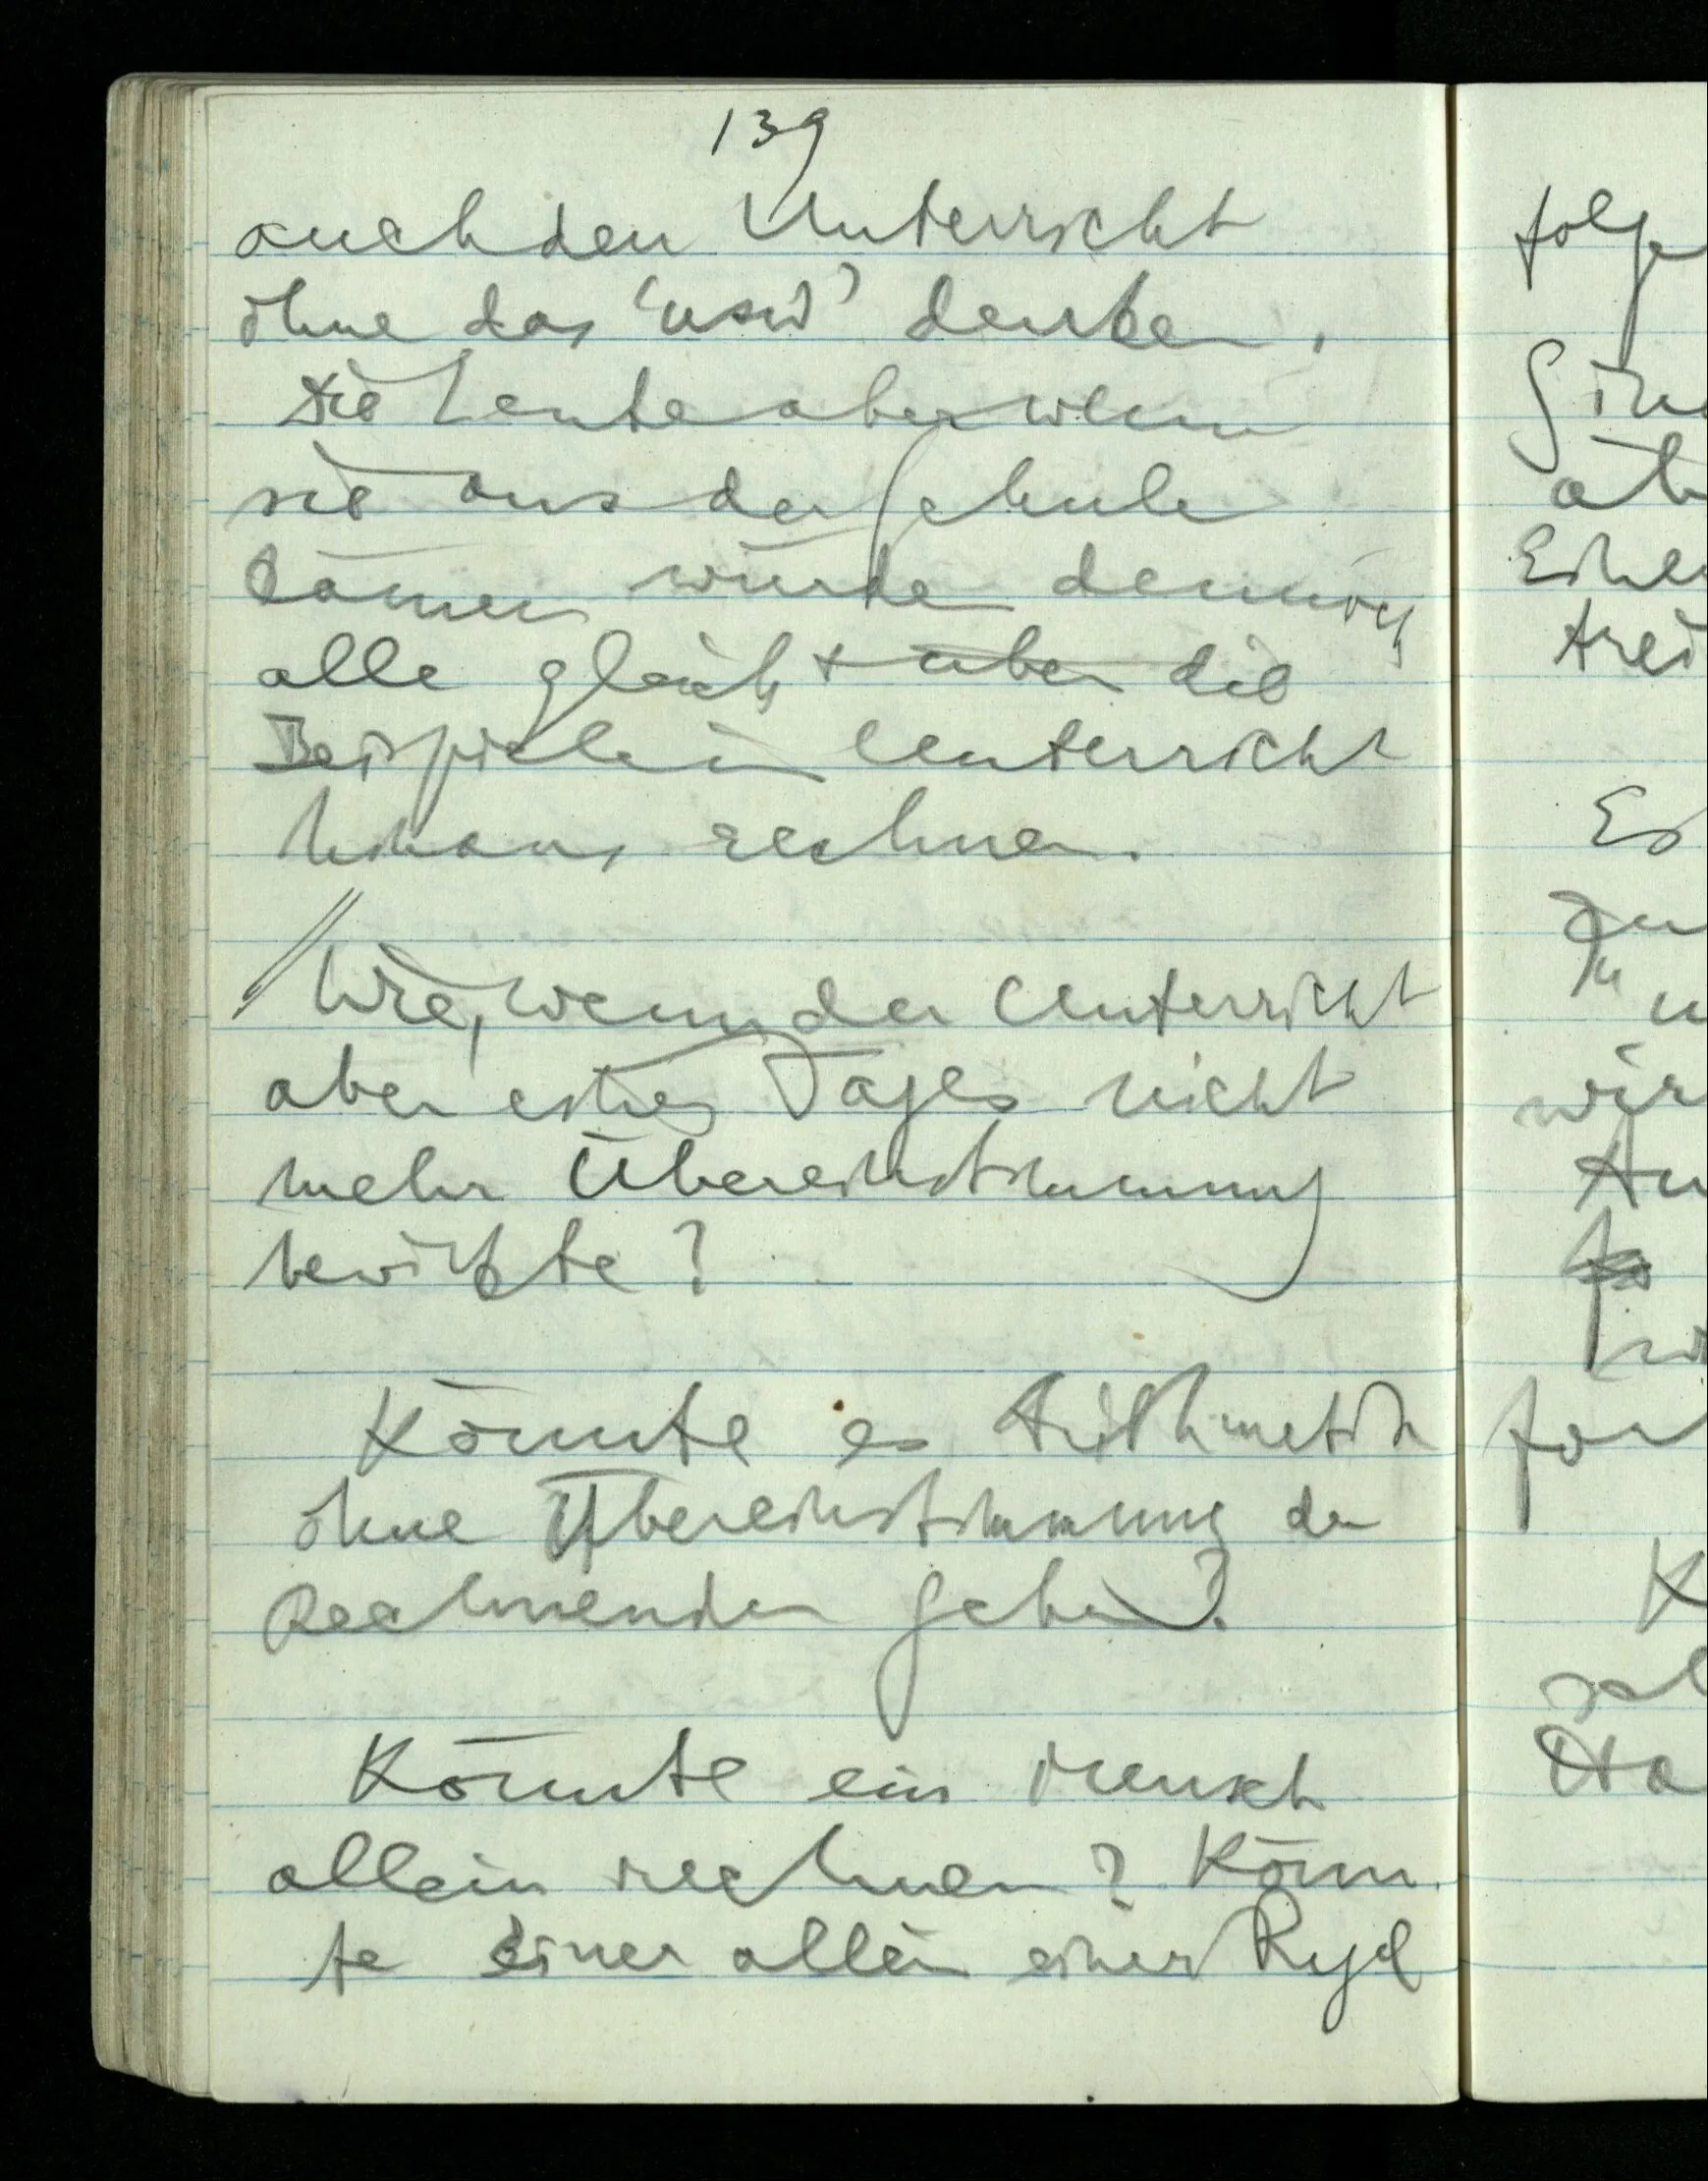 139
auch den Unterricht
ohne das 'usw' denken.
Die Leute aber wenn
sie aus der Schule
kämen würden dennoch
alle gleich & über die
Beispiele im Unterricht
hinaus rechnen.
// Wie, wenn der Unterricht
aber eines Tages nicht
mehr Übereinstimmung
bewirkte?
Könnte es Arithmetik
ohne Übereinstimmung der
Rechnenden geben?
Könnte ein Mensch
allein rechnen? Könn-
te Einer allein einer Regel
folge
Es